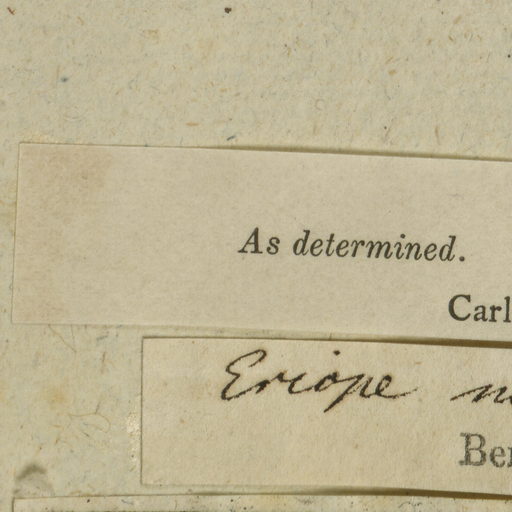 As determined.
Carl
Eriope
Ber